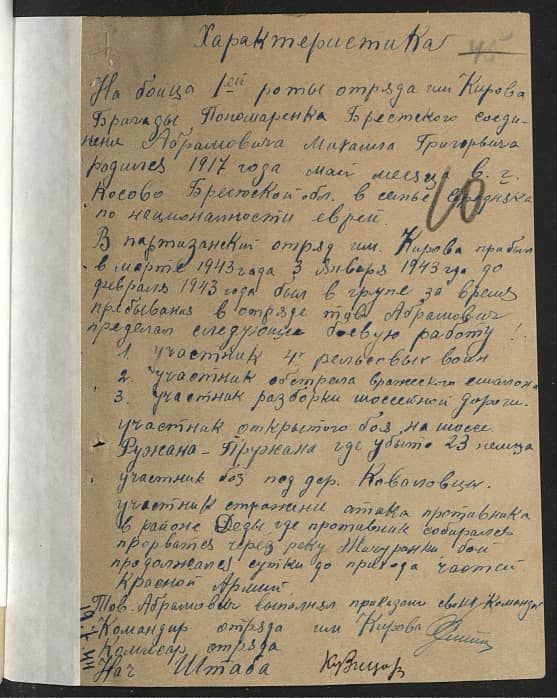 Характеристика
На бойца 1ей роты отряда им Кирова
Бригады Пономаренка Брестского соеди-
нени Абрамовича Михаила Григорьвича
родился 1917 года май месяца в. г.
Косово Брестской обл. в семье середняка
по национальности еврей.
В партизанский отряд им. Кирова прибыл
в марте 1943 года 3 Января 1943 года до
февраля 1943 года был в групе за время
пребывания в отряде тов Абрамович
проделал следующию боевую работу!
1. участник 4х рельсовых воин
2. участник обстрела вражеского эшалона
3. участник разборки шоссейной дороги.
участник открытого боя на шоссе
Ружана-Пружана где убыто 23 немца
участник боя под дер. Каваловцы.
участник отражение атака противника
в районе где противник собирался
прорватся через реку бой
продолжался сутки до прихода частей
Красной Армий.
Тов. Абрамович выполнял приказы своих Команди
Командир отряда им Кирова
Комисар отряда
Нач Штаба